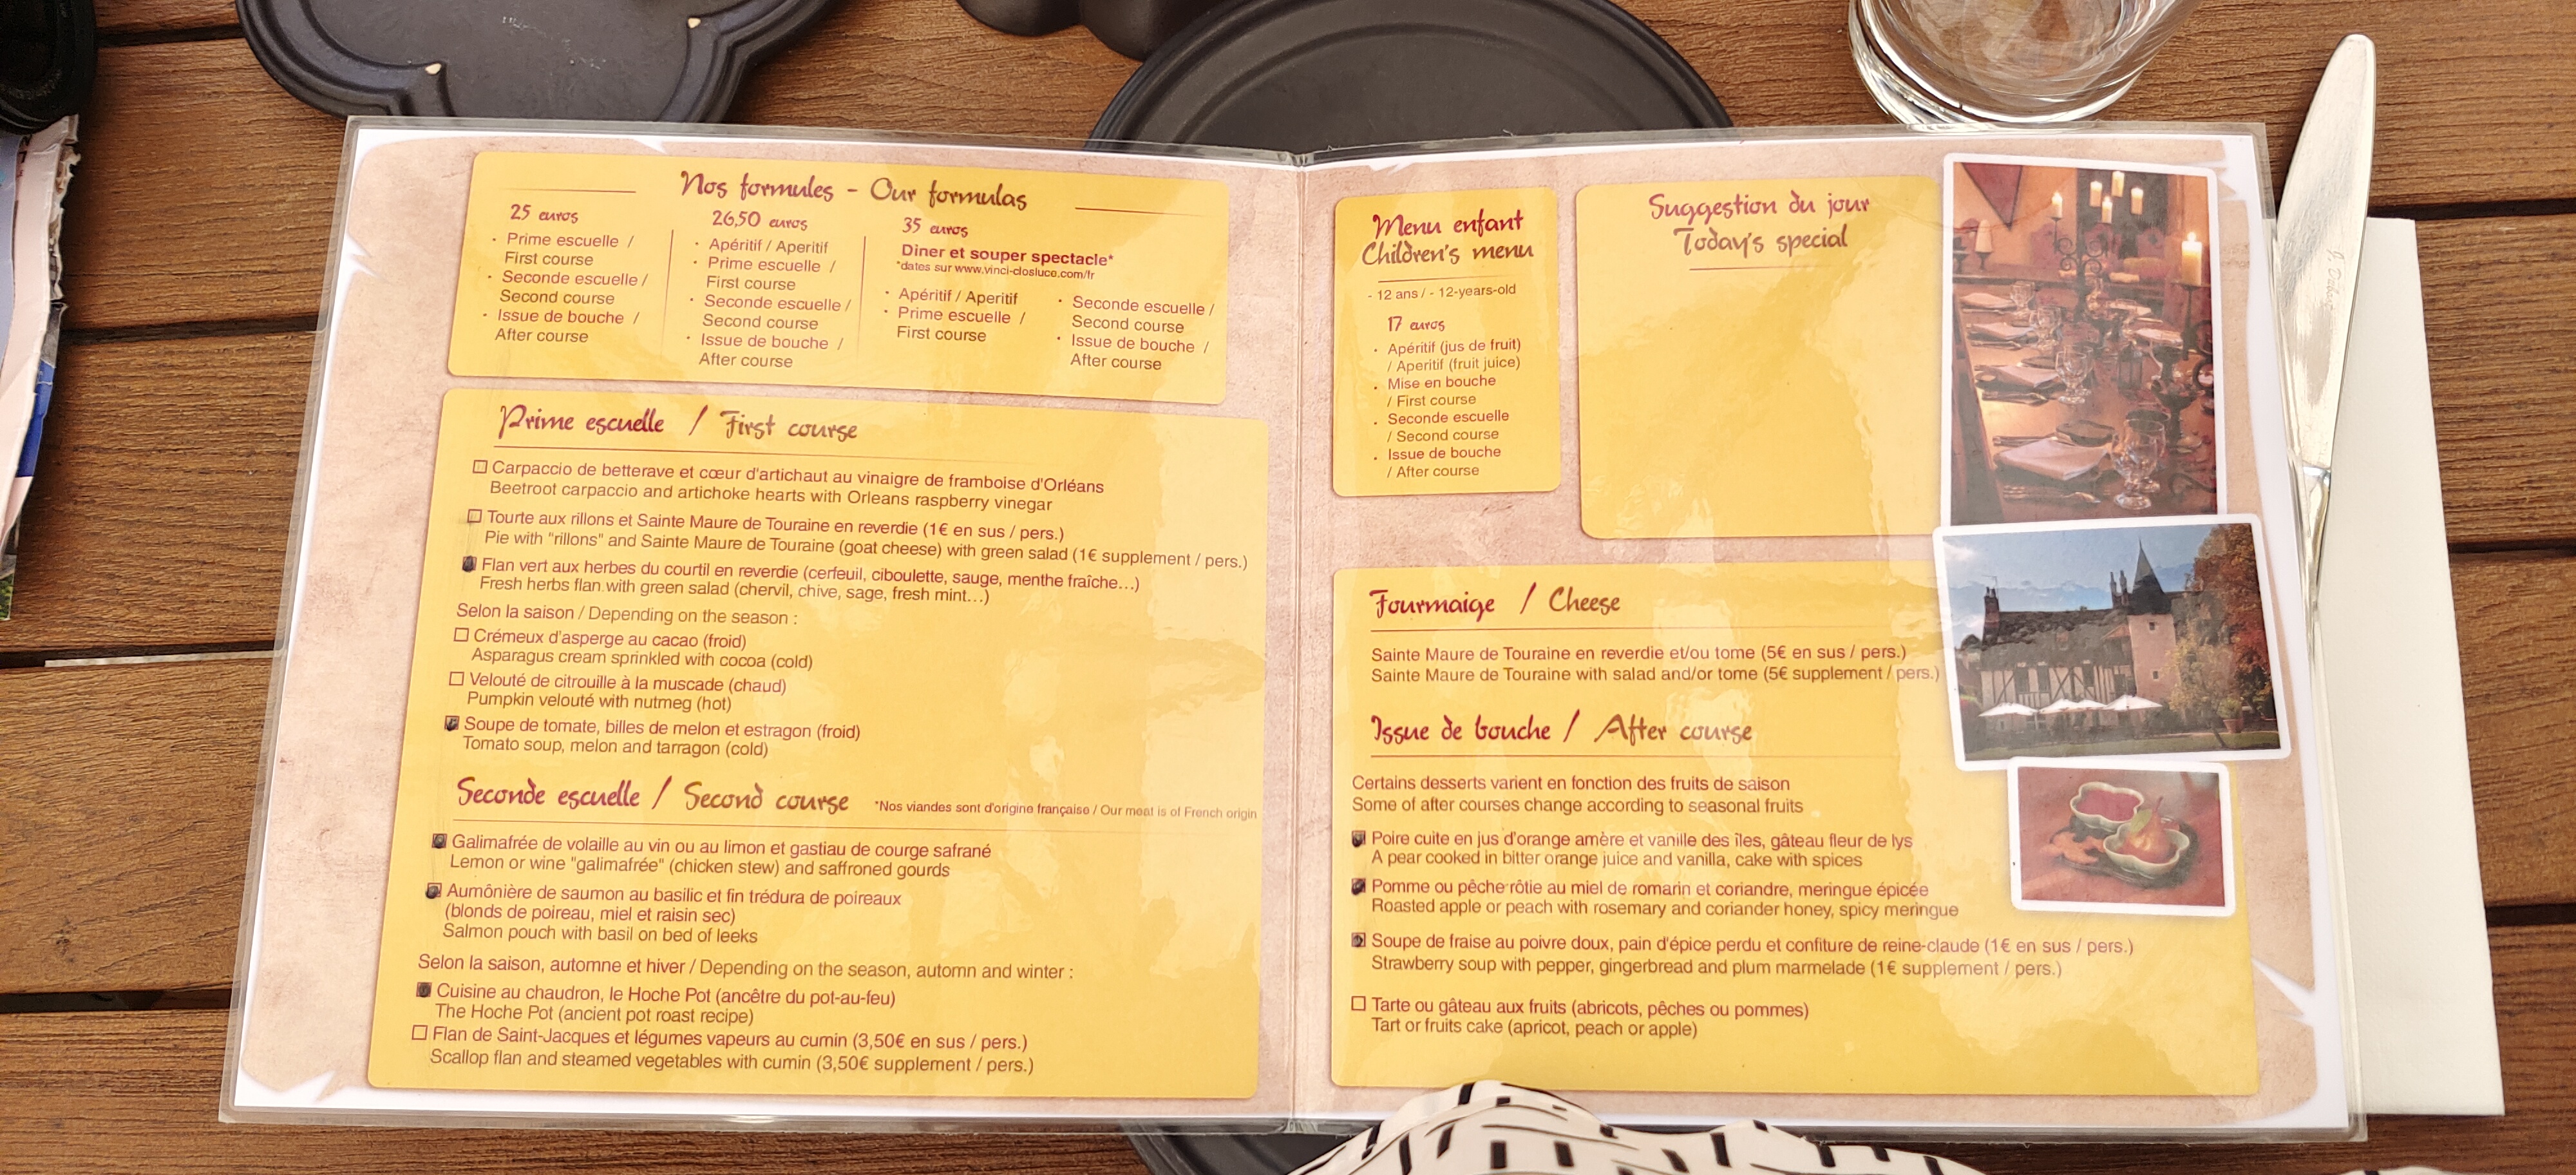 Nos formules - Our formulas
25 euros
• Prime escuelle /
First course
• Seconde escuelle /
Second course
• Issue de bouche /
After course
26,50 euros
• Apéritif / Aperitif
• Prime escuelle /
First course
• Seconde escuelle /
Second course
• Issue de bouche /
After course
35 euros
Diner et souper spectacle*
*dates sur www.vinci-closluce.com/fr
• Apéritif / Aperitif
• Prime escuelle /
First course
• Seconde escuelle /
Second course
• Issue de bouche /
After course
Prime escuelle / First course
Carpaccio de betterave et cœur d'artichaut au vinaigre de framboise d'Orléans
Beetroot carpaccio and artichoke hearts with Orleans raspberry vinegar
Tourte aux rillons et Sainte Maure de Touraine en reverdie (1€ en sus / pers.)
Pie with "rillons" and Sainte Maure de Touraine (goat cheese) with green salad (1€ supplement / pers.)
Flan vert aux herbes du courtil en reverdie (cerfeuil, ciboulette, sauge, menthe fraîche...)
Fresh herbs flan with green salad (chervil, chive, sage, fresh mint...)
Selon la saison / Depending on the season :
Crémeux d'asperge au cacao (froid)
Asparagus cream sprinkled with cocoa (cold)
Velouté de citrouille à la muscade (chaud)
Pumpkin velouté with nutmeg (hot)
Soupe de tomate, billes de melon et estragon (froid)
Tomato soup, melon and tarragon (cold)
Seconde escuelle / Second course *Nos viandes sont d'origine française / Our meat is of French origin
Galimafrée de volaille au vin ou au limon et gastiau de courge safrané
Lemon or wine "galimafrée" (chicken stew) and saffroned gourds
Aumônière de saumon au basilic et fin trédura de poireaux
(blonds de poireau, miel et raisin sec)
Salmon pouch with basil on bed of leeks
Selon la saison, automne et hiver / Depending on the season, automn and winter :
Cuisine au chaudron, le Hoche Pot (ancêtre du pot-au-feu)
The Hoche Pot (ancient pot roast recipe)
Flan de Saint-Jacques et légumes vapeurs au cumin (3,50€ en sus / pers.)
Scallop flan and steamed vegetables with cumin (3,50€ supplement / pers.)
Menu enfant
Children's menu
- 12 ans / - 12-years-old
17 euros
• Apéritif (jus de fruit)
/ Aperitif (fruit juice)
• Mise en bouche
/ First course
• Seconde escuelle
/ Second course
• Issue de bouche
/ After course
Suggestion du jour
Today's special
Fourmaige / Cheese
Sainte Maure de Touraine en reverdie et/ou tome (5€ en sus / pers.)
Sainte Maure de Touraine with salad and/or tome (5€ supplement / pers.)
Issue de bouche / After course
Certains desserts varient en fonction des fruits de saison
Some of after courses change according to seasonal fruits
Poire cuite en jus d'orange amère et vanille des îles, gâteau fleur de lys
A pear cooked in bitter orange juice and vanilla, cake with spices
Pomme ou pêche rôtie au miel de romarin et coriandre, meringue épicée
Roasted apple or peach with rosemary and coriander honey, spicy meringue
Soupe de fraise au poivre doux, pain d'épice perdu et confiture de reine-claude (1€ en sus / pers.)
Strawberry soup with pepper, gingerbread and plum marmelade (1€ supplement / pers.)
Tarte ou gâteau aux fruits (abricots, pêches ou pommes)
Tart or fruits cake (apricot, peach or apple)